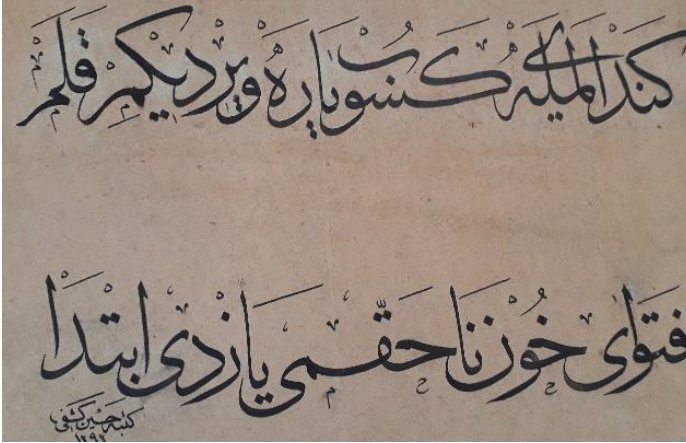 كندى المله كسوب ياره ويرديكم قلم
فتواى خون ناحقمى يازدى ابتدا
كتبه حسين كشفى
١٢٩٢